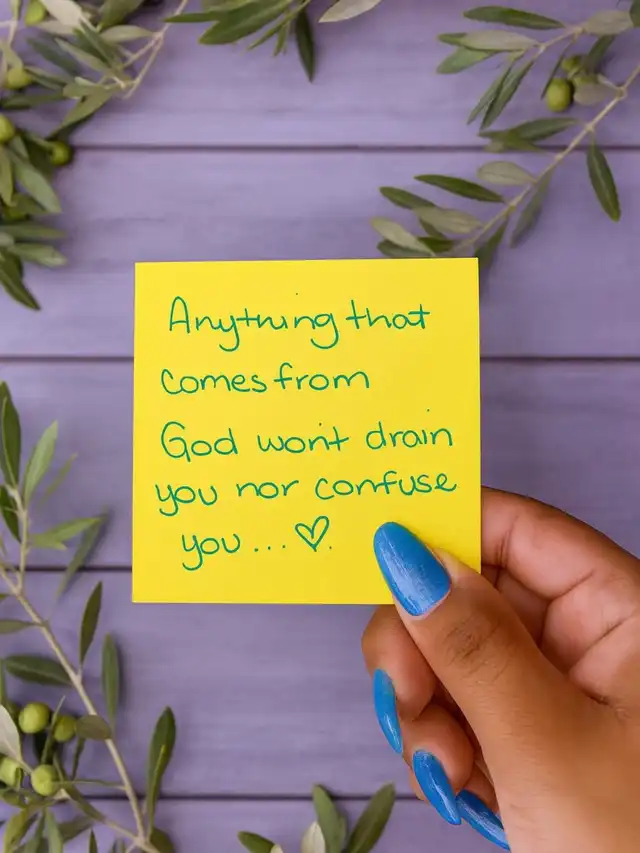 Anything that
comes from
God won't drain
you nor confuse
you... ♡